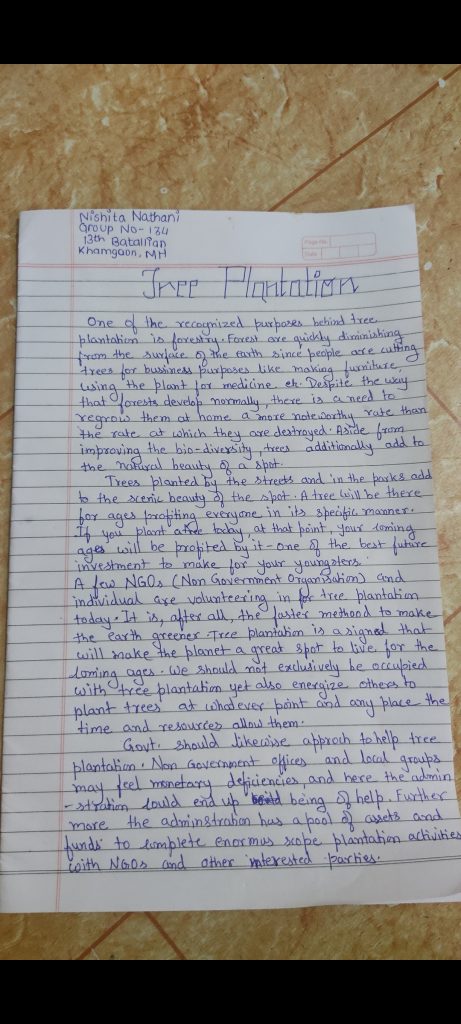 Nishita Nathani
Group No- 134
13th Batallian
Khamgaon, MH
Page No.
Date
Tree Plantation
One of the recognized purposes behind tree
plantation is forestry. Forest are quickly diminishing
from the surface of the earth since people are cutting
trees for business purposes like making furniture,
using the plant for medicine etc. Despite the way
that forests develop normally, there is a need to
regrow them at home a more noteworthy rate than
the rate at which they are destroyed. Aside from
improving the bio-diversity, trees additionally add to
the natural beauty of a spot.
Trees planted by the streets and in the parks add
to the scenic beauty of the spot. A tree will be there
for ages profiting everyone in its specific manner.
If you plant a tree today, at that point, your coming
ages will be profited by it - one of the best future
investment to make for your youngsters.
A few NGOs (Non Government Organisation) and
individual are volunteering in for tree plantation
today. It is, after all, the faster methood to make
the earth greener. Tree plantation is a signed that
will make the planet a great spot to live for the
coming ages. We should not exclusively be occupied
with tree plantation yet also energize others to
plant trees at whatever point and any place the
time and resources allow them.
Govt. should likewise approch to help tree
plantation. Non Government offices and local groups
may feel monetary deficiencies, and here the admin
-stration could end up being of help. Further
more the adminstration has a pool of assets and
funds to complete enormus scope plantation activities
with NGOs and other interested parties.